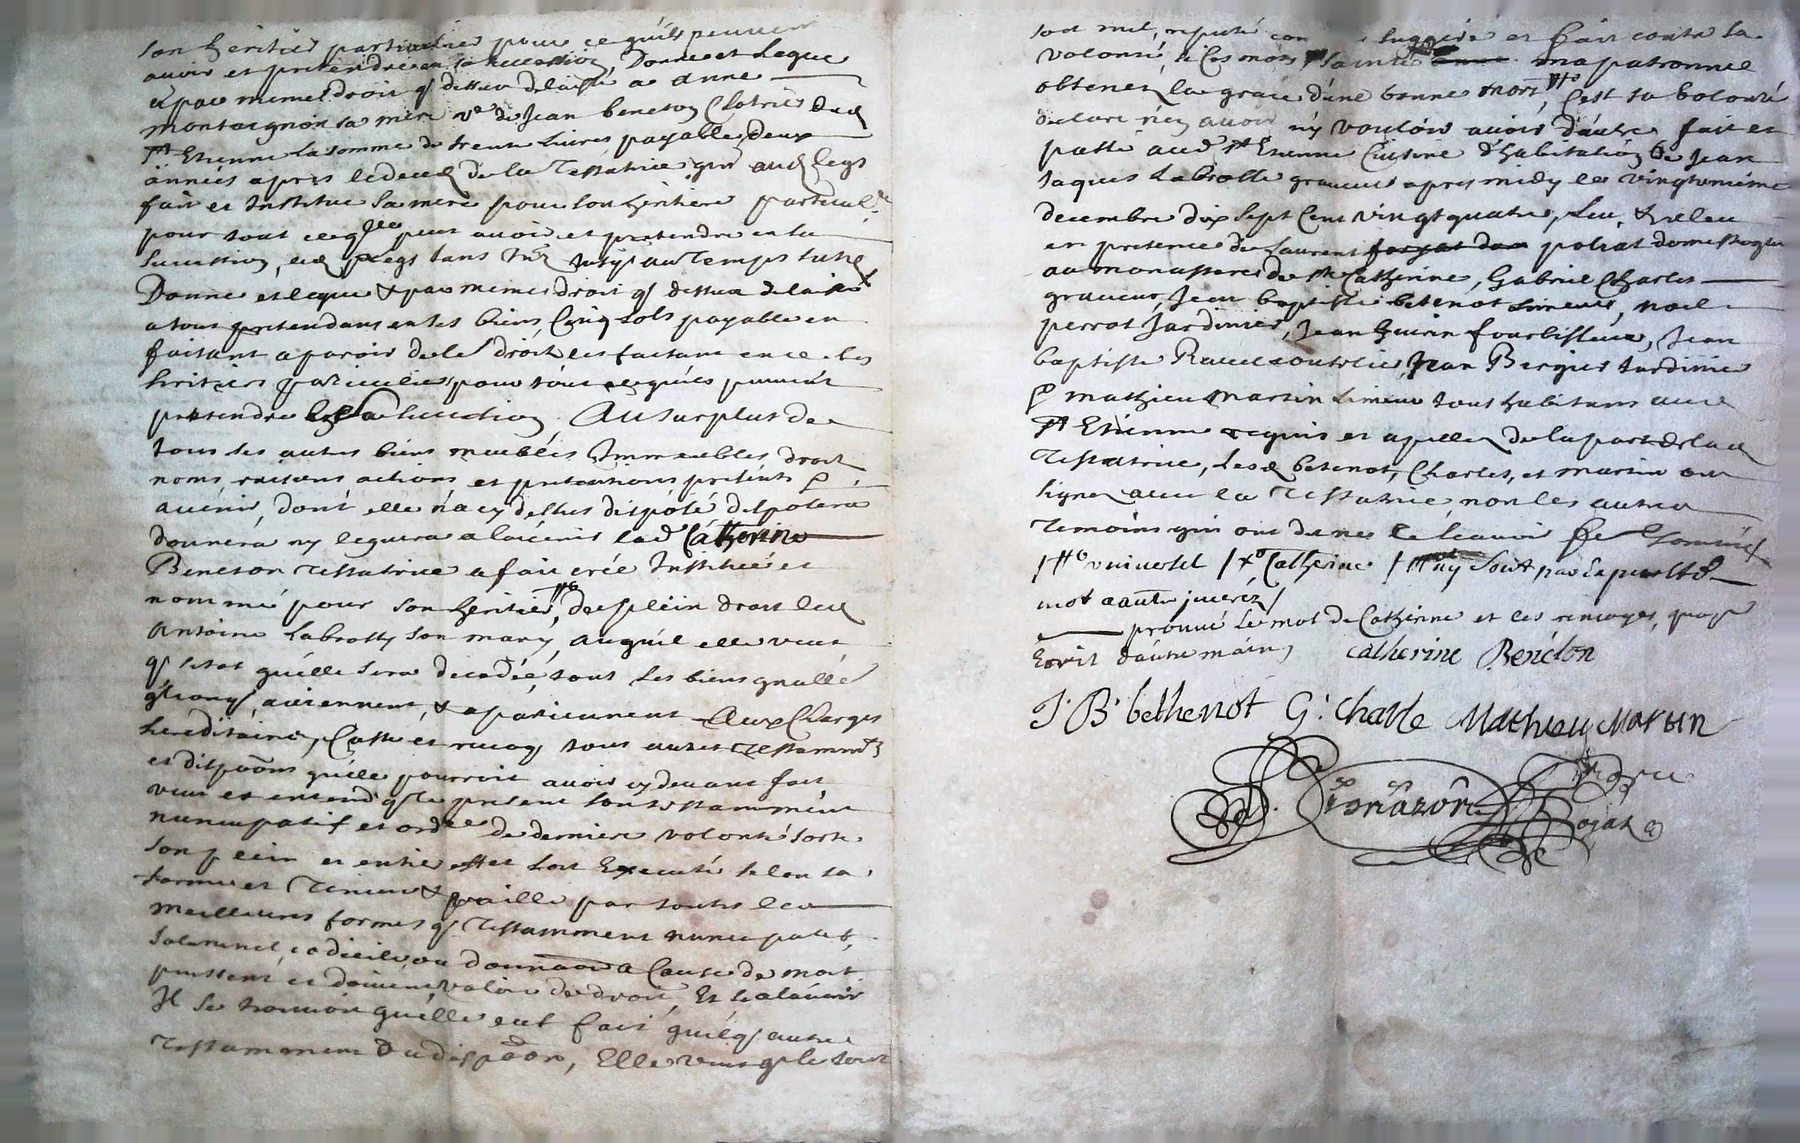 son heritier particulier pour ce quils peuvent
avoir et pretendre en sa succession, Donne et legue
& par mesme droit q dessus delaisse a anne
montaignon sa mere ve de Jean beneton Clotrier dud
st Etienne la somme de trente livres payable deux
années apres le deceds de la Testatrice, quoy aud legs
fait et Institue sa mere pour son heritiere particul.re
pour tout ce qlle peut avoir et pretendre en sa
succession, led legs sans Int jusqu'au Temps susd
Donne et legue & par mesme droit q dessus delaisse
a tous pretendans en ses biens, Cinq sols payable en
faisant aparoir de le droit les faisant en ce ses
heritiers particuliers pour tout ce quils peuvent
pretendre en sa succession. Au surplus de
tous ses autres biens meubles Immeubles droit
noms, raisons actions et pretentions presents &
avenir, dont elle n'a cy dessus disposé disposera
donnera ny leguera a l'avenir lad Catherine
Beneton Testatrice a fait créé Institué et
nommé pour son heritier, de plein droit led
Antoine Labrosse son mary, auquel elle veut
q sitot qu'elle sera decedée, tous ses biens
aviennent, & apartiennent aux Charges
hereditaires, Casse et revoq tous autres Testamts
et dispoons qu'elle pourroit avoir cy devant fait
veut et entend q le present son testamment
nuncupatif et ordce de derniere volonté sorte
son plein et entier effet soit Executé selon sa
forme et Teneur & vaille par toutes les
meilleures formes q Testamment nuncupatif,
solemnel, codicile ou donnaon a Cause de mort
puissent et doivent valoir de droit, Et si a l'avenir
Il se trouvoit qu'elle eut fait quelq autre
Testamment ou dispoon, Elle veut q le tout
soit nul, reputé comme suggeré et fait contre sa
volonté, si Ces mots sainte ma patronne
obtenez la grace d'une bonne mort, C'est sa volonté
declare n'en avoir n'y vouloir avoir d'autre fait et
passé aud st Etienne Cuisine d'habitation de Jean
Jaques Labrosse graveur apres midy le vingtneuvieme
decembre dix sept Cent vingt quatre, Leu, & releu
en presence de Laurent poliat domestique
au monastere de ste Catherine, Gabriel Charles
graveur, Jean baptiste betenot Limeur, noel
perrot Jardinier, Jean Guerin fourbisseur, Jean
baptiste Ravel coutelier, Jean Bergier Jardinier
& mathieu martin Limeur tous habitans aud
st Etienne requis et apellez de la part de lad
Testatrice, Lesd betenot, Charles, et martin ont
signé avec la Testatrice, non les autres
Temoins qui ont declaré ne le scavoir de ce sommés
/ universel / Catherine / ny soit par Expres
mot a autre inserez /
prouvé le mot de Catherine et les renvoys, quoy
Ecrit d'autre main, catherine Benéton
J. B. bethenot G. charle Mathieu Martin